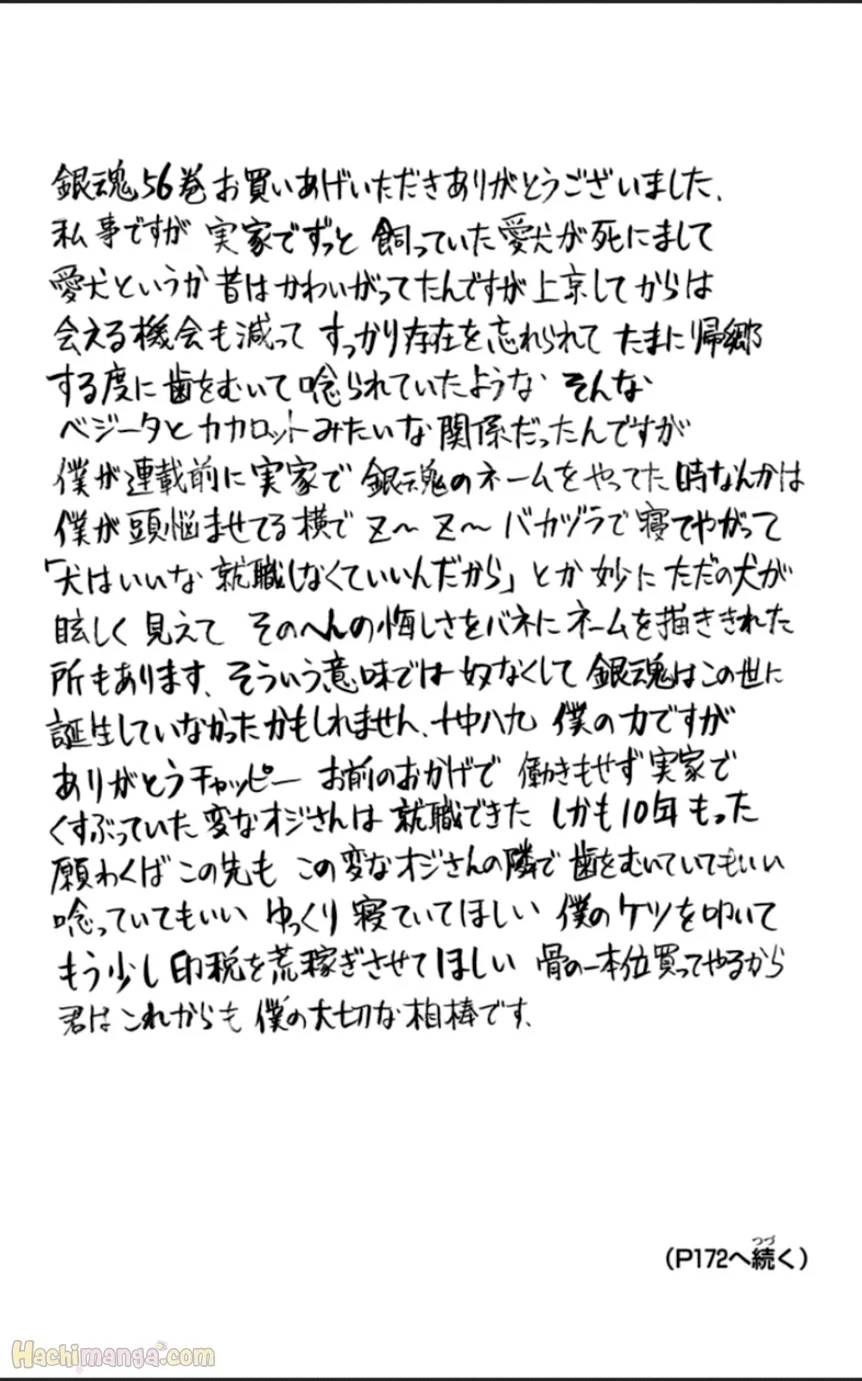 銀魂56巻お買いあげいただきありがとうございました、
私事ですが 実家でずっと 飼っていた愛犬が死にまして
愛犬というか昔はかわいがってたんですが上京してからは
会える機会も減って すっかり存在を忘れられて たまに帰郷
する度に歯をむいて唸られていたような そんな
ベジータとカカロットみたいな関係だったんですが
僕が連載前に実家で 銀魂のネームをやってた時なんかは
僕が頭悩ませてる横で Z〜 Z〜 バカヅラで寝てやがって
「犬はいいな 就職しなくていいんだから」とか妙にただの犬が
眩しく見えて そのへんの悔しさをバネにネームを描ききれた
所もあります、そういう意味では奴なくして 銀魂はこの世に
誕生していなかったかもしれません、十中八九 僕の力ですが
ありがとうチャッピー お前のおかげで 働きもせず実家で
くすぶっていた変なオジさんは 就職できた しかも10年もった
願わくばこの先も この変なオジさんの隣で歯をむいていてもいい
唸っていてもいい ゆっくり寝ていてほしい 僕のケツを叩いて
もう少し印税を荒稼ぎさせてほしい 骨の一本位買ってやるから
君はこれからも 僕の大切な相棒です、
(P172へ続く)
つづ
Hachimanga.com